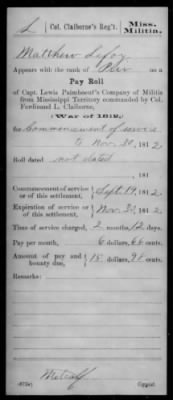 L | Col. Claiborne's Reg't. | Miss. Militia.
Matthew
Appears with the rank of Priv on a
Pay Roll
of Capt. Lewis Paimboeuf's Company of Militia
from Mississippi Territory commanded by Col.
Ferdinand L. Claiborne,
(War of 1812,)
for Commencement of service
to Nov 30, 1812
Roll dated not dated
, 181 .
Commencement of service or of this settlement, } Sept 19, 1812
Expiration of service or of this settlement, } Nov 30, 1812
Time of service charged, 2 months, 12 days.
Pay per month, 6 dollars, 66 cents.
Amount of pay and bounty due, } 15 dollars, 98 cents.
Remarks:
Metcalf
(572c) Copyist.